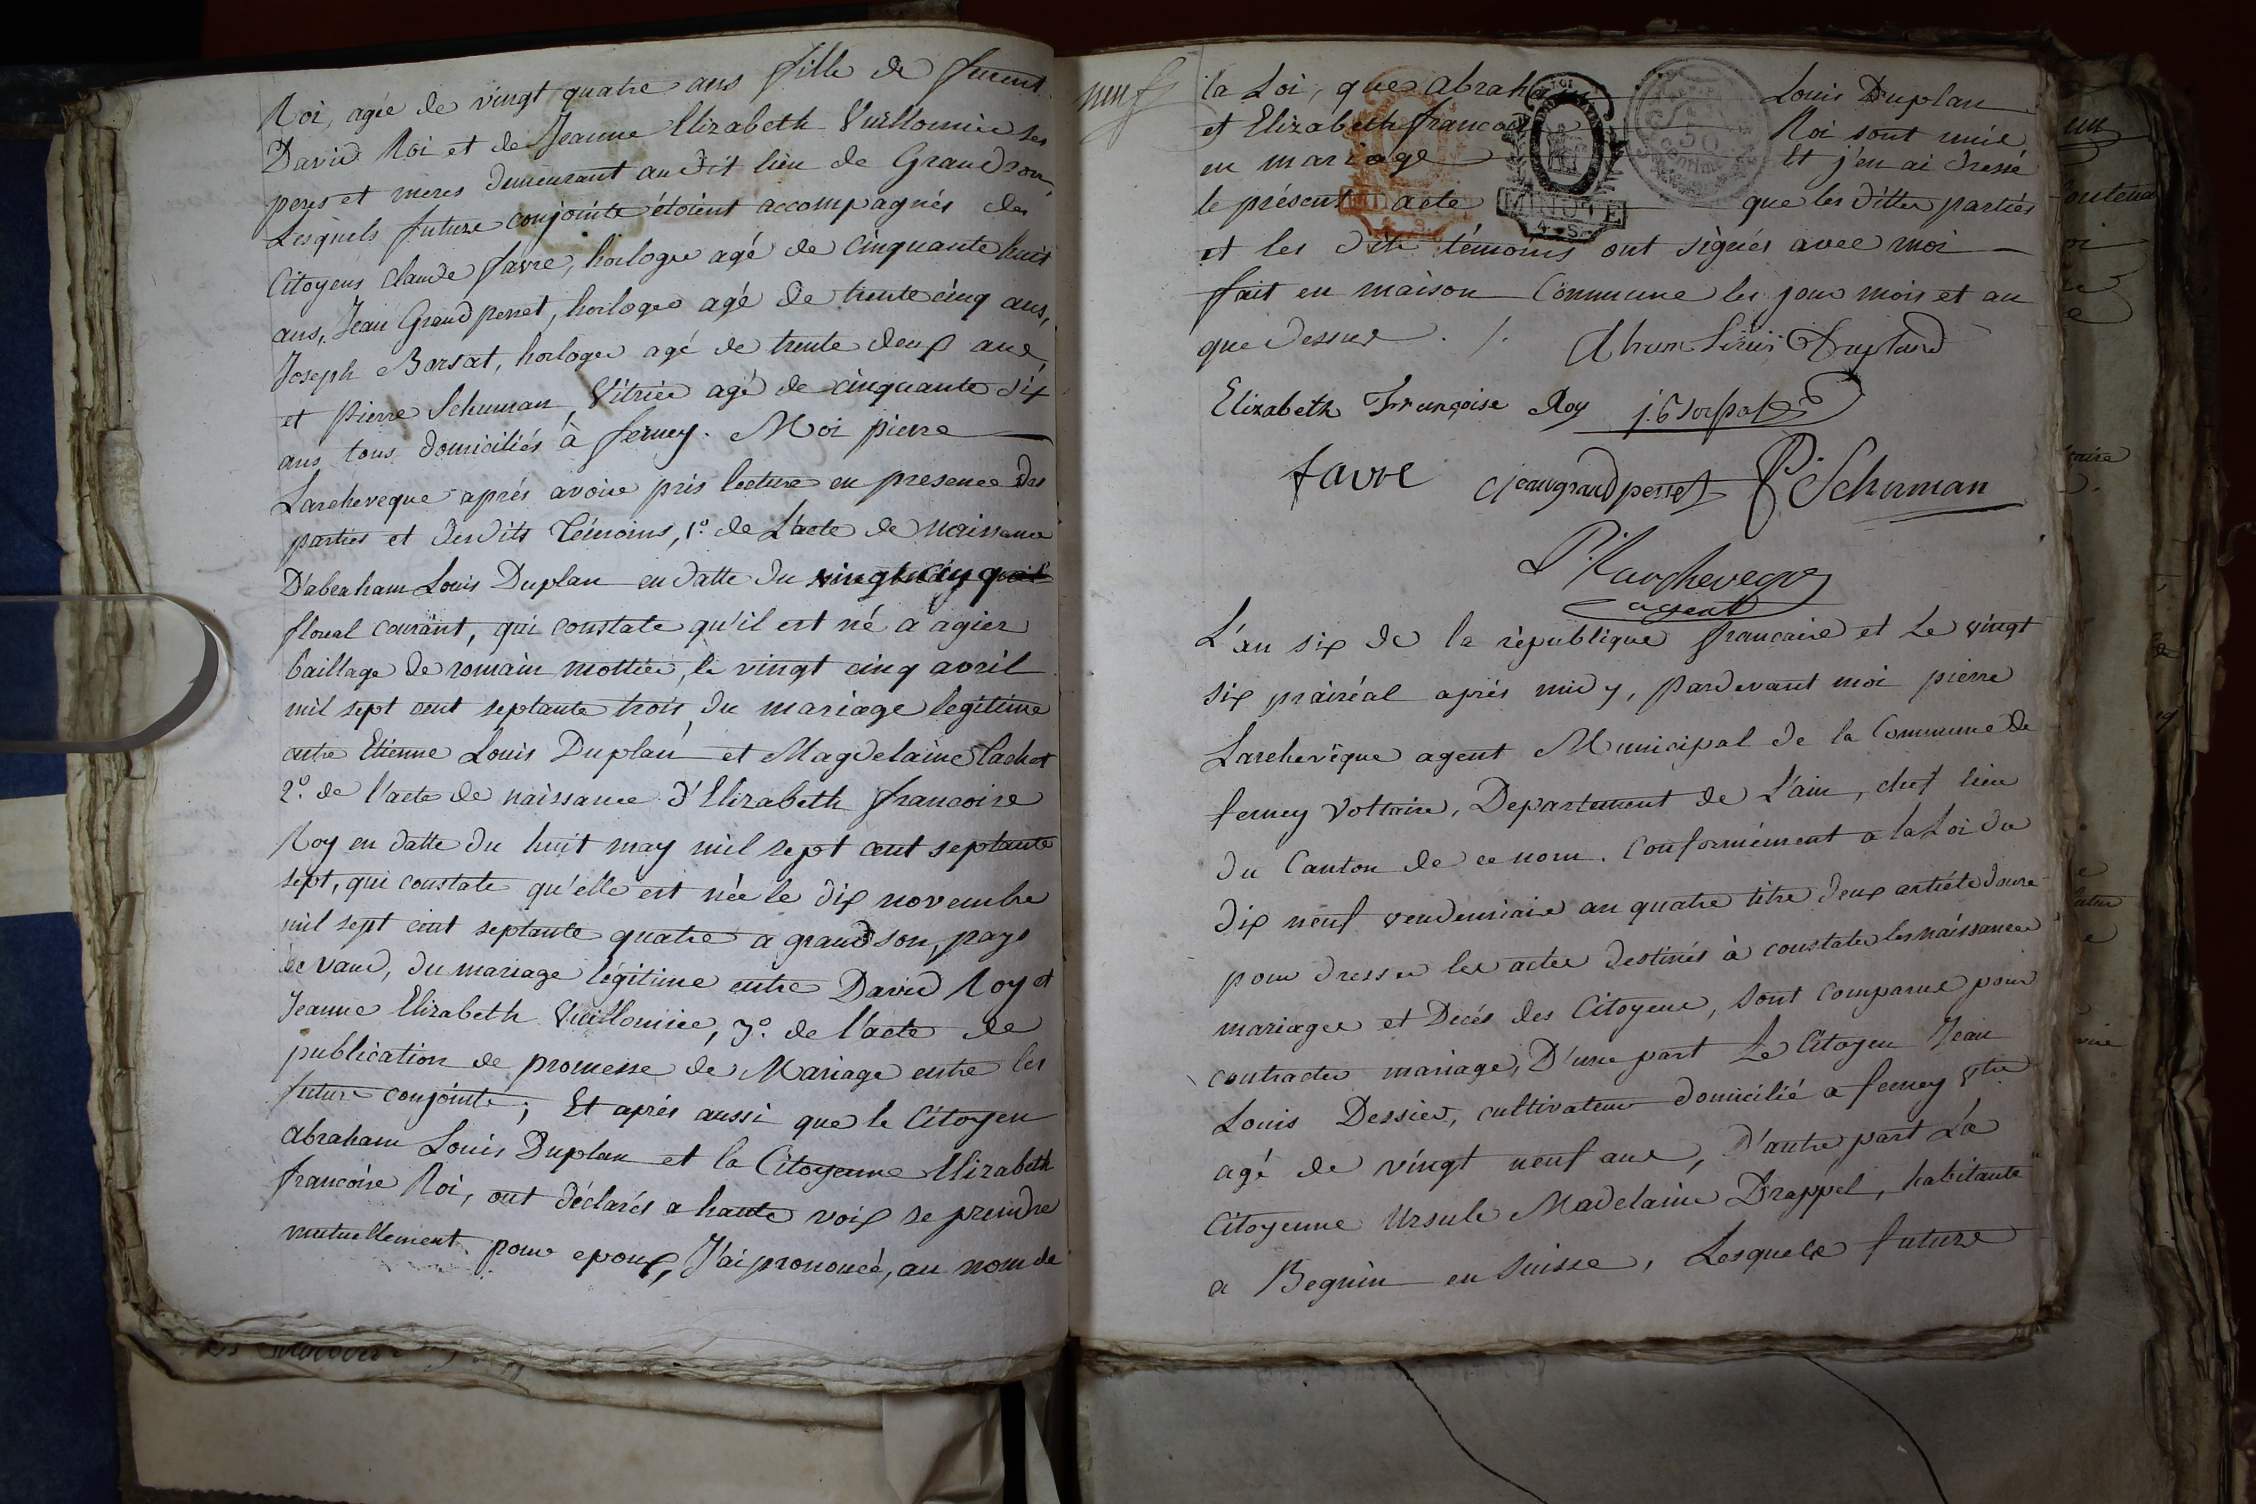 Roi, agée de vingt quatre ans fille de furent
David Roi et de Jeanne Elizabeth Vuillomiée ses
peres et meres demeurant audit lieu de Grandson,
Lesquels futurs conjoints étoient accompagnés des
Citoyens Claude favre, horloger agé de cinquante huit
ans, Jean Grand perret, horloger agé de trente cinq ans,
Joseph Borsat, horloger agé de trente deux ans,
et pierre Schuman, Vitrier agé de cinquante six
ans tous domiciliés à ferney. Moi pierre
Larcheveque aprés avoir pris lecture en presence des
parties et desdits témoins, 1.º de L'acte de naissance
D'abraham Louis Duplan en datte du vingt cinq
floreal courant, qui constate qu'il est né a agier
baillage de romain mottier, le vingt cinq avril
mil sept cent septante trois, du mariage legitime
entre Etienne Louis Duplan et Magdelaine Cachot
2.º de l'acte de naissance d'Elizabeth francoise
Roy en datte du huit may mil sept cent septante
sept, qui constate qu'elle est née le dix novembre
mil sept cent septante quatre a grandson, pays
de vaud, du mariage légitime entre David Roy et
Jeanne Elizabeth Vuillomiée, 3.º de l'acte de
publication de promesse de Mariage entre les
futurs conjoints; Et aprés aussi que le Citoyen
Abraham Louis Duplan et la Citoyenne Elizabeth
francoise Roi, ont déclarés a haute voix se prendre
mutuellement pour epoux, J'ai prononcé, au nom de
neuf
la Loi, que Abraham Louis Duplan
et Elizabeth francoise Roi sont unie
en mariage Et j'en ai dressé
le présent acte que les dittes parties
et les dits témoins ont signés avec moi
fait en maison Commune les jour mois et an
que dessus ./.
50
centimes
MINUTE
Abram Louis Dupland
Elizabeth Françoise Roy
favre jean grand perret P. Schuman
P. Larcheveque
agent
L'an six de la république francaise et Le vingt
six prairéal aprés midy, Pardevant moi pierre
Larchevêque agent Municipal de la Commune de
ferney Voltaire, Departement de L'ain, chef lieu
du Canton de ce nom. Conformément a la Loi du
dix neuf vendemiaire an quatre titre deux article douze
pour dresser les actes destinés à constater les naissances
mariages et Décés des Citoyens, Sont comparus pour
contracter mariage, D'une part Le Citoyen Jean
Louis Dessier, cultivateur domicilié a ferney Vtre
agé de vingt neuf ans, D'autre part La
Citoyenne Ursule Madelaine Drappel, habitante
a Begnin en Suisse, Lesquels futurs